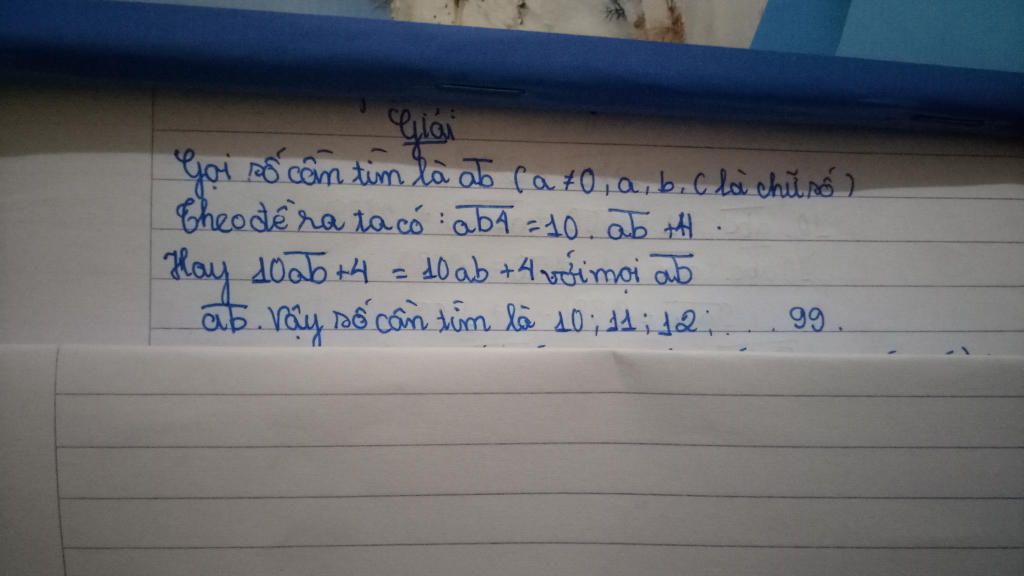 Giải
Gọi số cần tìm là a̅b̅ (a ≠ 0, a, b, ( là chữ số)
Theo đề ra ta có : a̅b̅4̅ = 10. a̅b̅ + 4.
Hay 10a̅b̅ + 4 = 10ab + 4 với mọi a̅b̅
a̅b̅. Vậy số cần tìm là 10; 11; 12; .... 99.